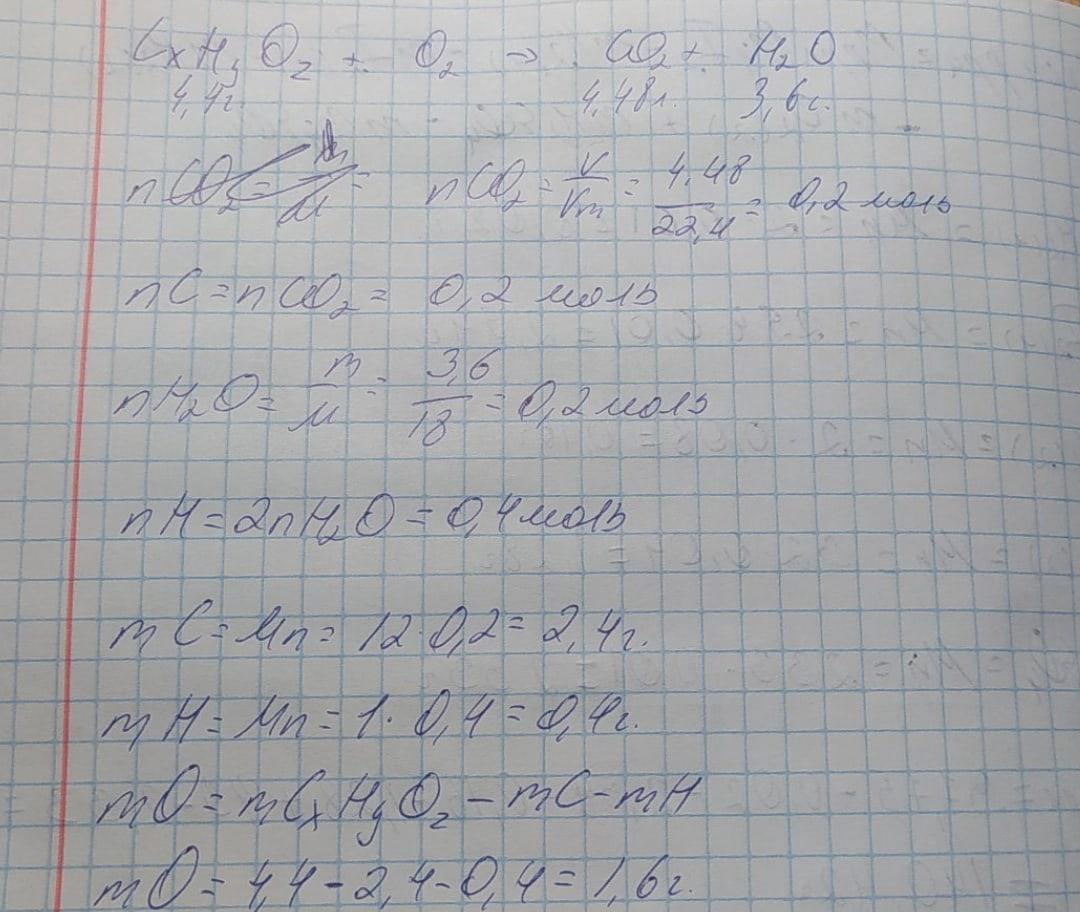 CxHyOz + O2 → CO2 + H2O
4,4г. 4,48л. 3,6г.
nCO2 = m/M = nCO2 = V/Vm = 4,48/22,4 = 0,2 моль
nC = nCO2 = 0,2 моль
nH2O = m/M = 3,6/18 = 0,2 моль
nH = 2nH2O = 0,4 моль
mC = Mn = 12·0,2 = 2,4г.
mH = Mn = 1·0,4 = 0,4г.
mO = mCxHyOz - mC - mH
mO = 4,4 - 2,4 - 0,4 = 1,6г.